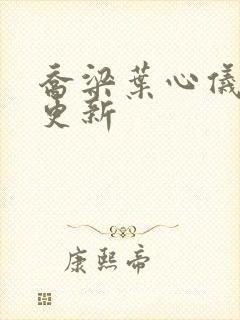 乔梁葉心儀
更新
康熙帝